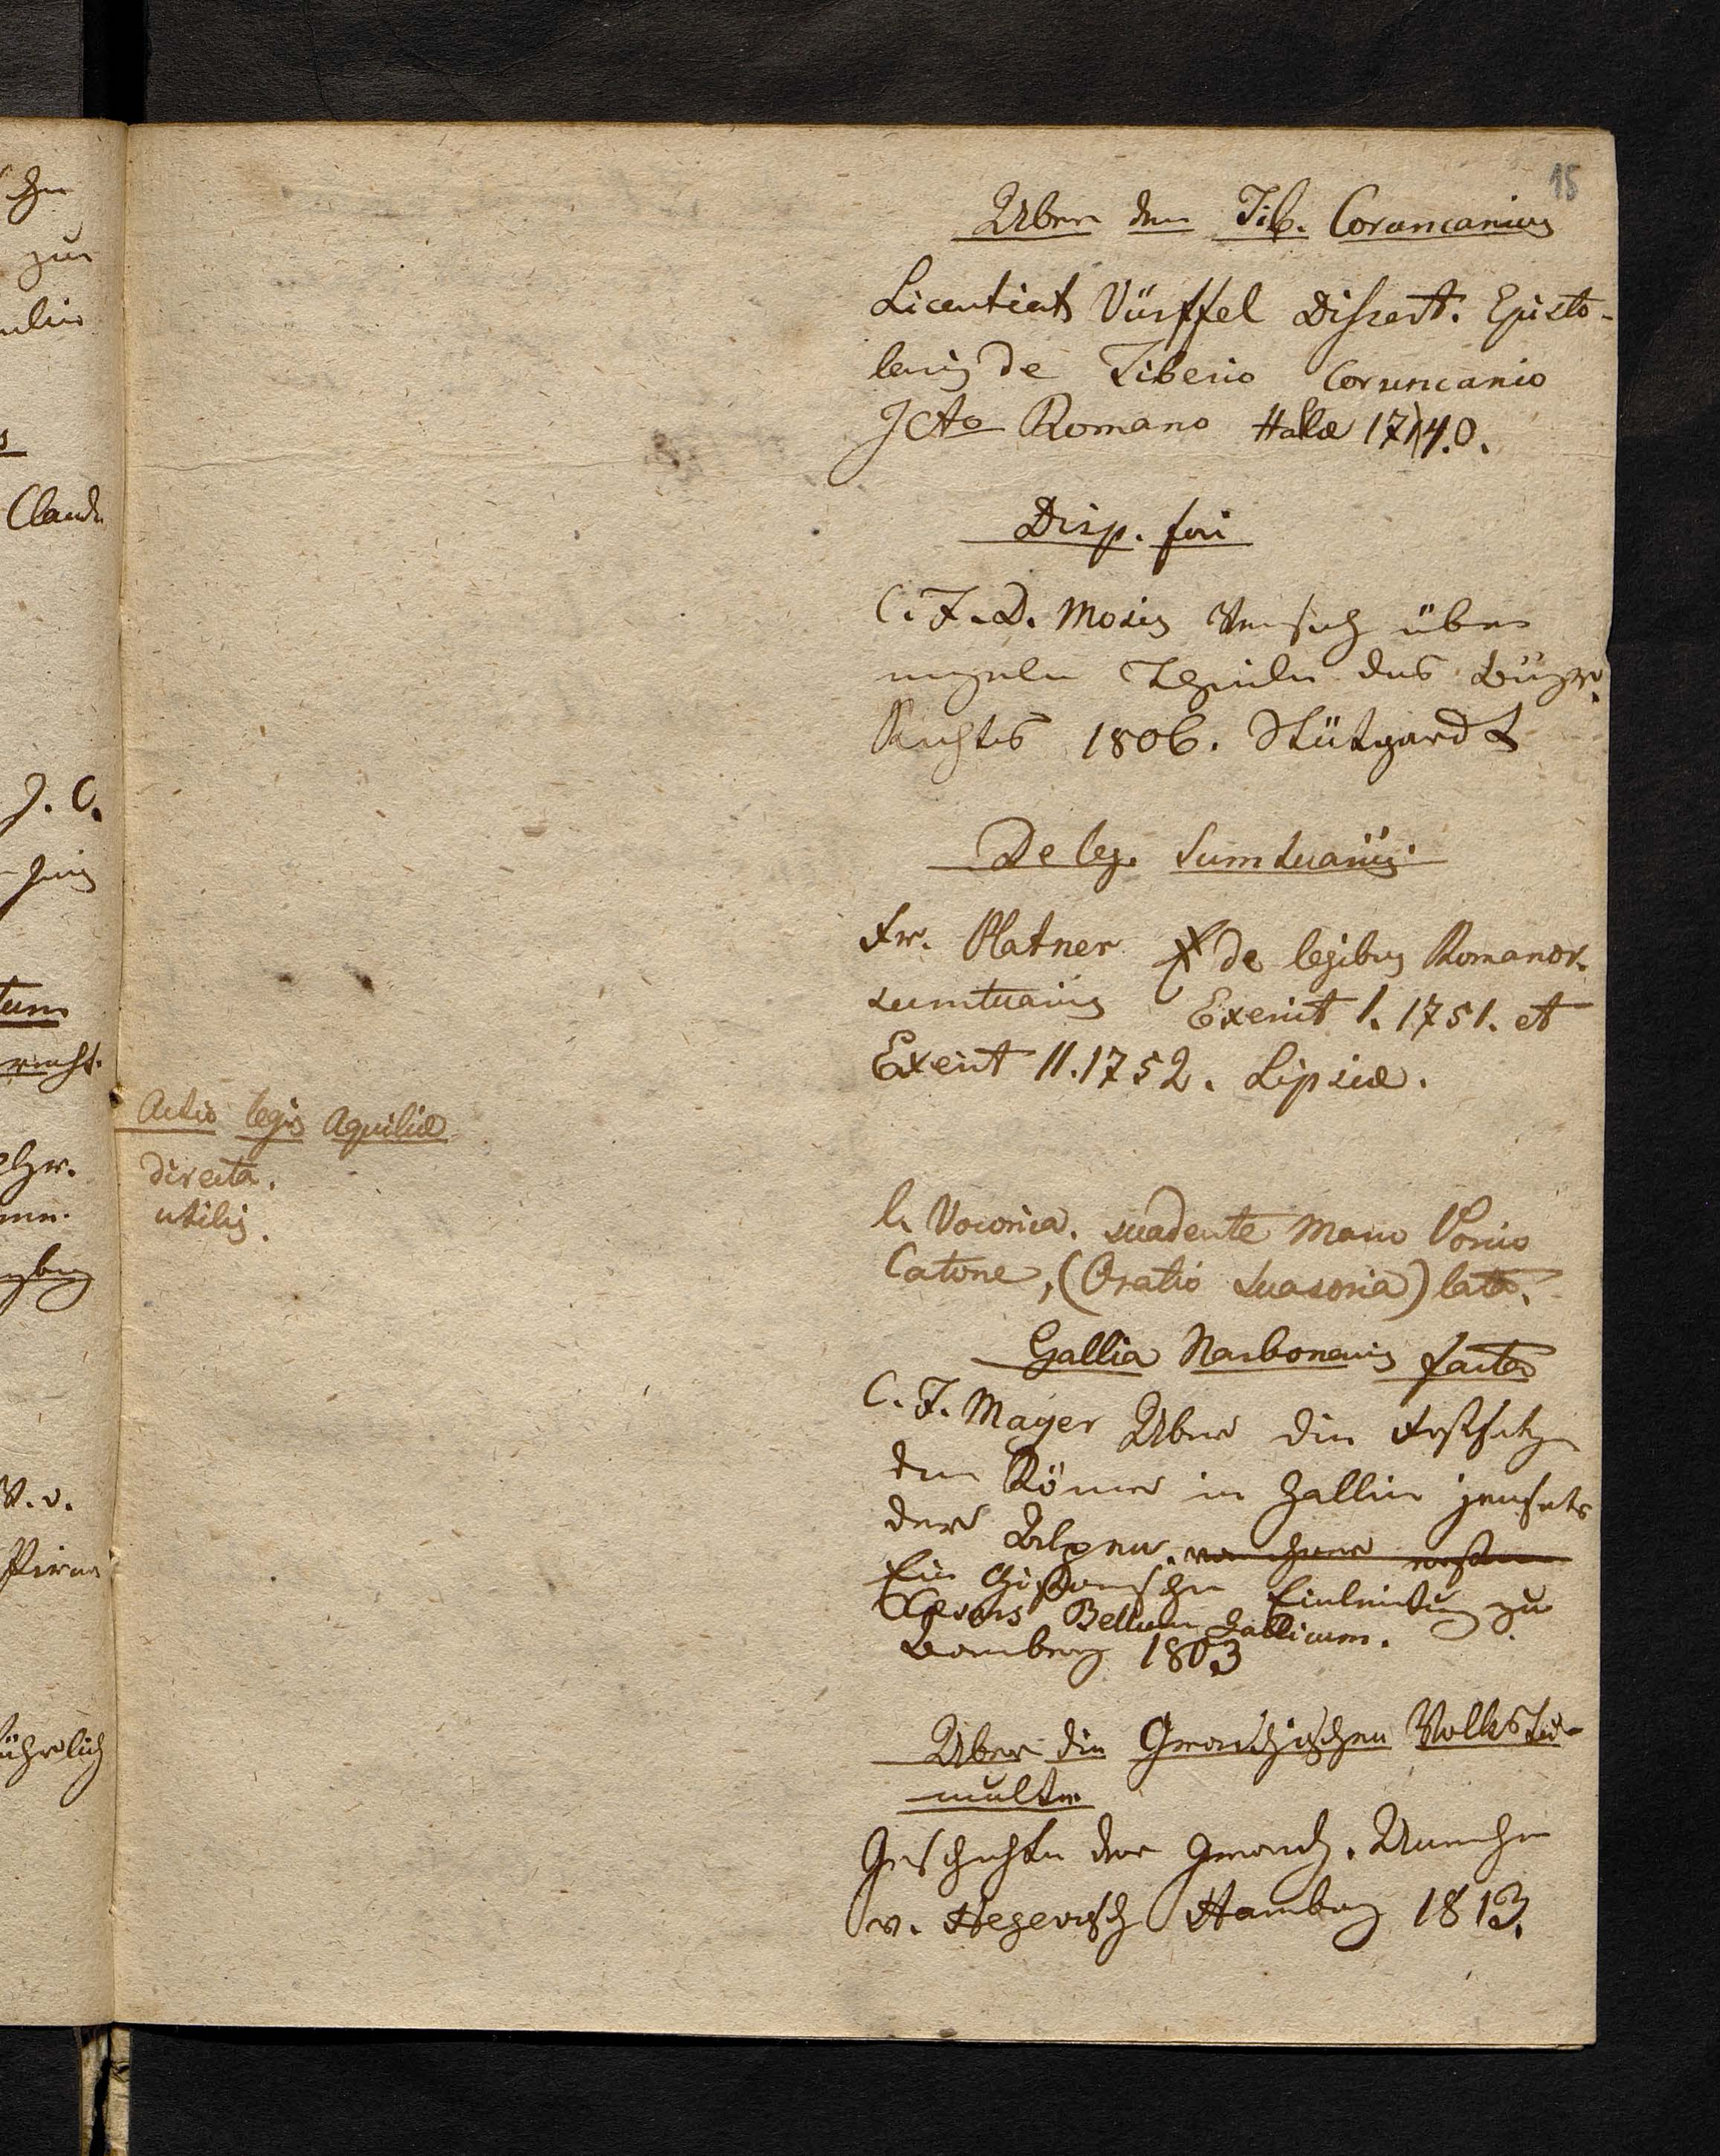 15
Über den Tib. Coruncanius
Licentiat Vürffel Dissert. Episto-
laris de Tiberio Coruncanio
JCto Romano Halæ 1740.
Disp. fori
C. F. D. Moris Versuch über
Theile des Bürgr.
Rechtes 1806. Stüttgardt
De leg. Sumtuariis
Fr. Platner de legibus Romanor.
sumtuariis Exercit I. 1751. et
Exercit II. 1752. Lipsiæ.
Actio legis Aquiliæ
directa.
utilis.
l. Voconia. suadente Marco Porcio
Catone, (Oratio Suasoria) lata.
Gallia Narbonensis facta
C. F. Mayer Über die Festsetzg
der Römer in Gallien jenseits
der Alpen.
Ein historische Einleitung zu
Cæsars Bellum Gallicum.
Bamberg 1803
Über die Gracchischen Volkstu-
multe
Geschichte der Gracch. Unruhen
v. Hegewisch Hamburg 1813.
hr
zur
s
Claud
J. C.
tum
recht.
W. v.
Pirna
ührlich